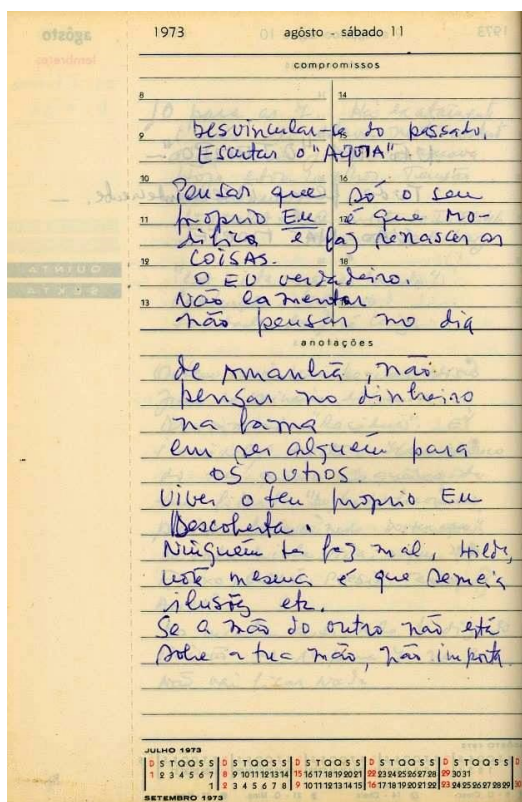 1973 agôsto - sábado 11
compromissos
8 14
9 15
Desvincular-se do passado.
Escutar o "AQUIA"
10 16
Pensar que só o seu
11 17
próprio EU é que MO-
difica e faz renascer as
12 18
COISAS.
O EU verdadeiro.
13 19
Não lamentar
não pensar no dia
anotações
de Amanhã, não
pensar no dinheiro
na fama
em ser alguém para
OS OUTROS.
Viver o teu próprio Eu
Descoberta.
Ninguém te faz mal, Hilda,
você mesma é que semeia
ilusões etc.
Se a mão do outro não está
sobre a tua mão, não importa.
JULHO 1973
D S T Q Q S S D S T Q Q S S D S T Q Q S S D S T Q Q S S D S T Q Q S S D
1 2 3 4 5 6 7 8 9 10 11 12 13 14 15 16 17 18 19 20 21 22 23 24 25 26 27 28 29 30 31
1 2 3 4 5 6 7 8 9 10 11 12 13 14 15 16 17 18 19 20 21 22 23 24 25 26 27 28 29 30
SETEMBRO 1973